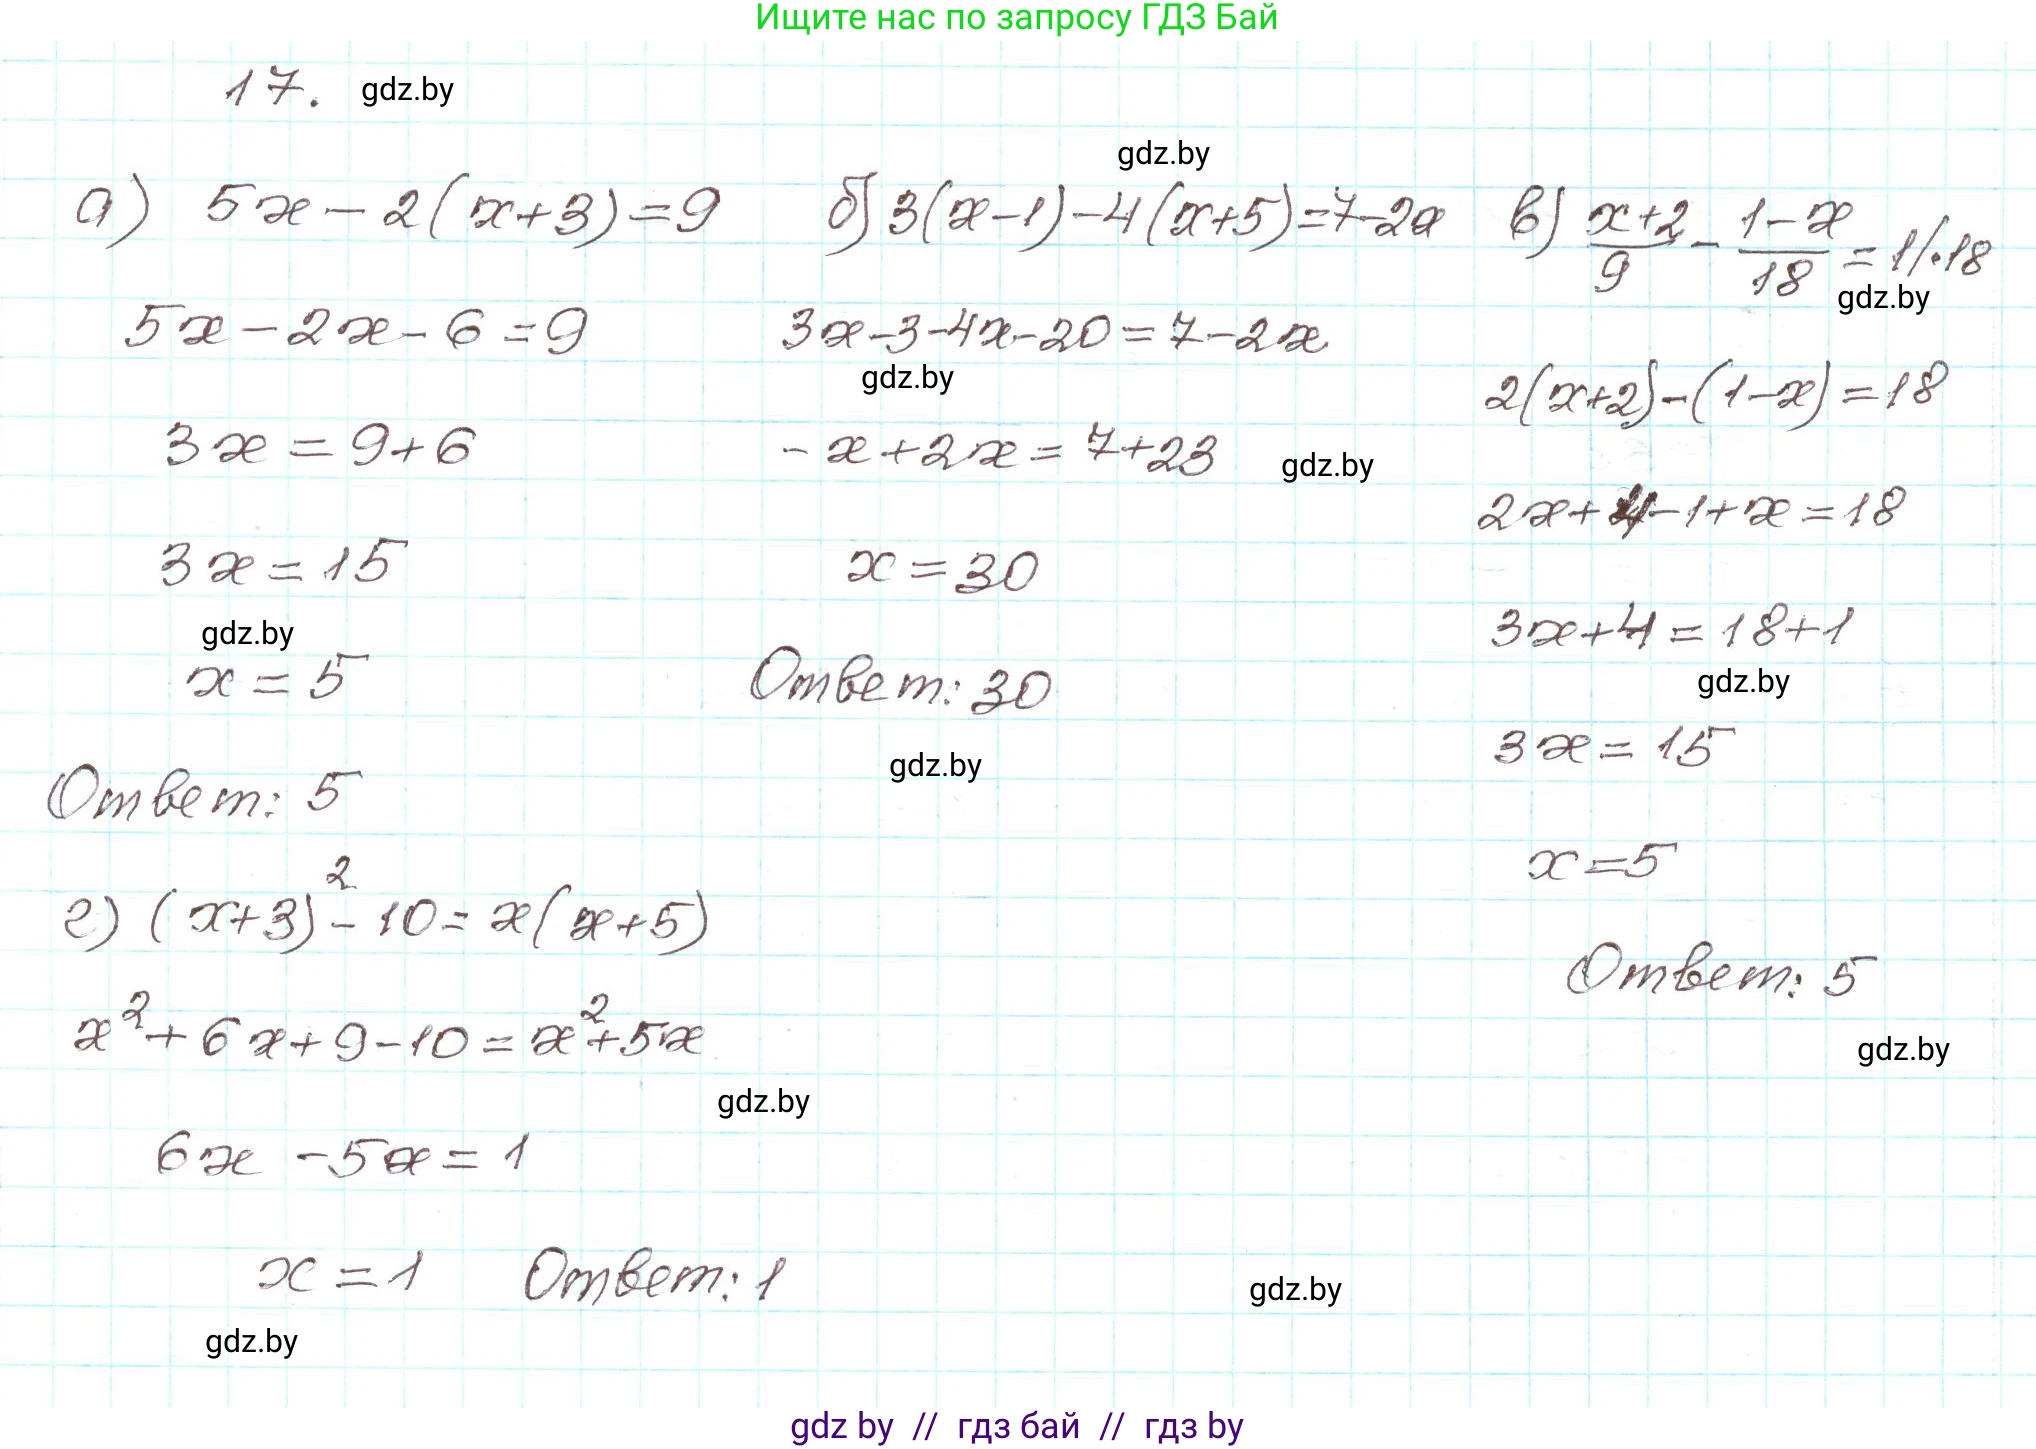 Ищите нас по запросу ГДЗ Бай
17. gdz.by
gdz.by
а) 5x - 2(x+3) = 9
5x - 2x - 6 = 9
3x = 9 + 6
3x = 15
gdz.by
x = 5
Ответ: 5
б) 3(x-1) - 4(x+5) = 7 - 2x
3x - 3 - 4x - 20 = 7 - 2x
gdz.by
-x + 2x = 7 + 23
gdz.by
x = 30
Ответ: 30
gdz.by
в) (x+2)/9 - (1-x)/18 = 1 /·18
gdz.by
2(x+2) - (1-x) = 18
2x + 4 - 1 + x = 18
3x + 4 = 18 + 1
gdz.by
3x = 15
x = 5
Ответ: 5
gdz.by
г) (x+3)² - 10 = x(x+5)
x² + 6x + 9 - 10 = x² + 5x
gdz.by
6x - 5x = 1
x = 1 Ответ: 1
gdz.by
gdz.by
gdz by // гдз бай // гдз by